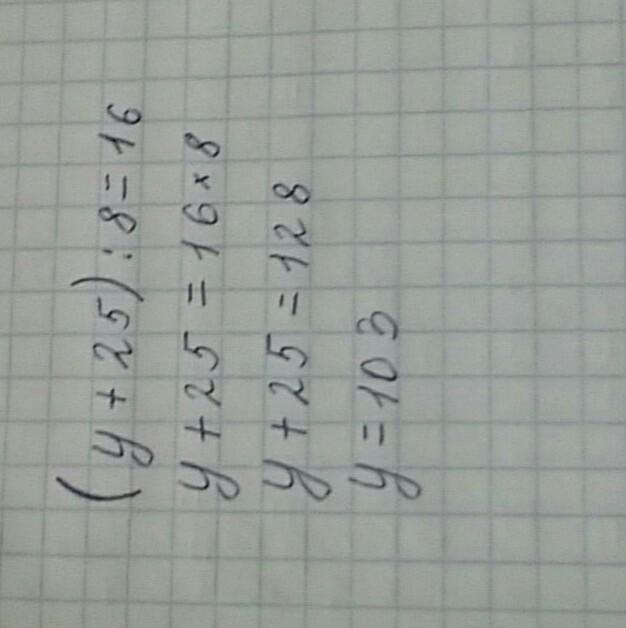 (y + 25) : 8 = 16
y + 25 = 16 × 8
y + 25 = 128
y = 103